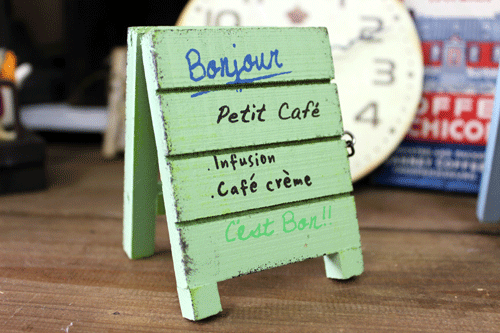 Bonjour
Petit Café
.Infusion
.Café crème
C'est Bon!!
12
2
3
4
COFFEE
CHICO